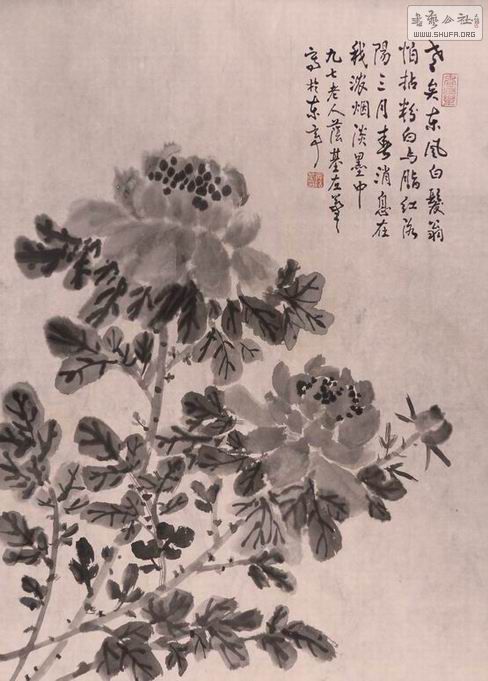 老矣东风白发翁
怕拈粉白与脂红洛
阳三月春消息在
我浓烟淡墨中
九七老人荫基左笔
写于东亭
书艺公社
WWW.SHUFA.ORG